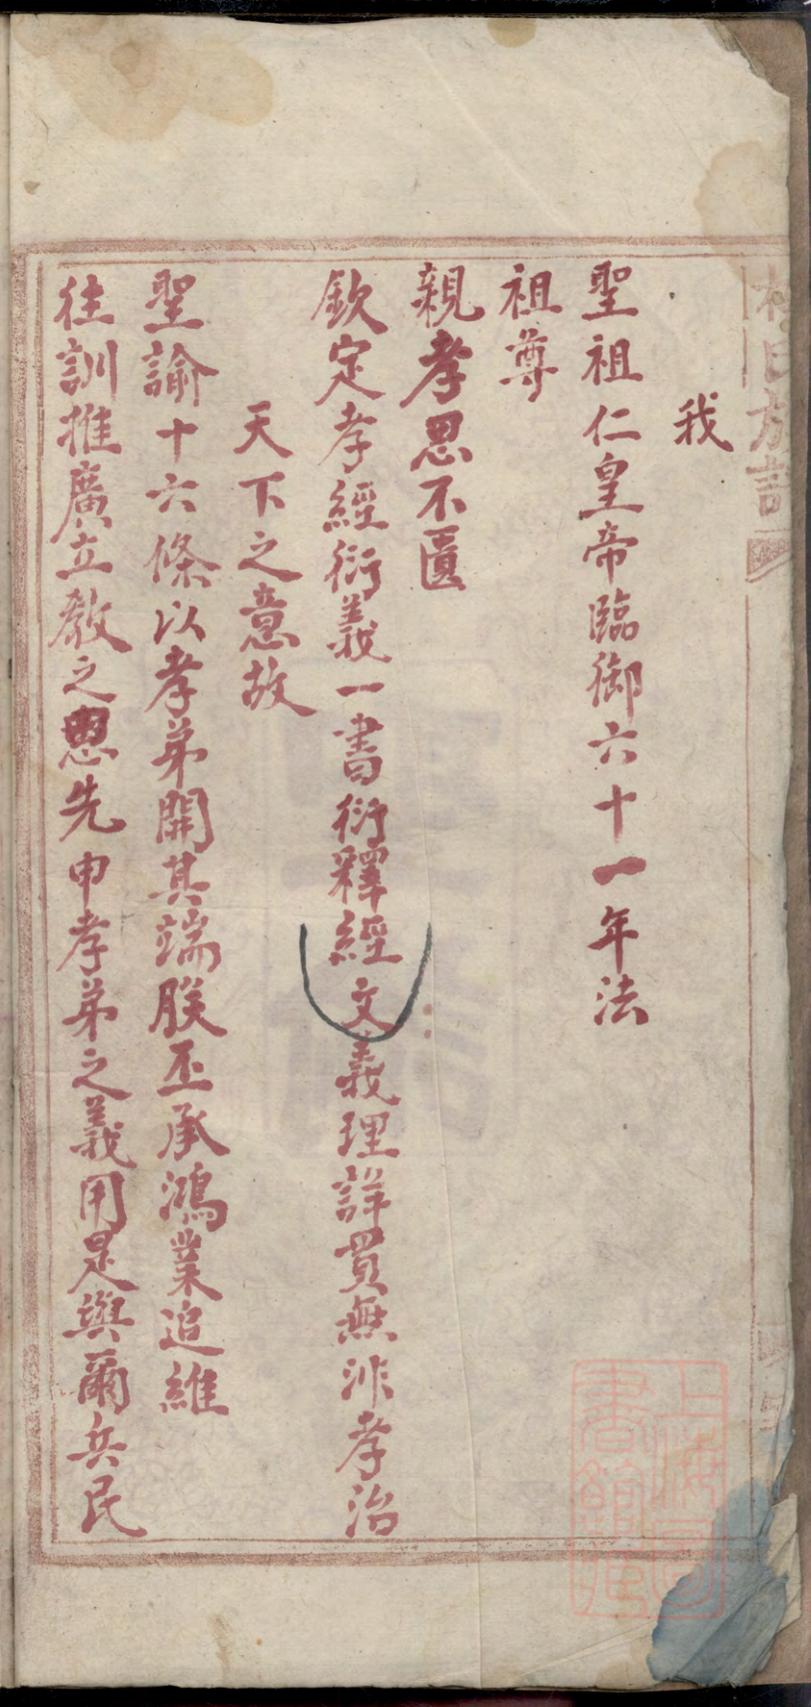 我
聖祖仁皇帝臨御六十一年法
祖尊
親孝思不匱
欽定孝經衍義一書衍釋經文義理詳貫無非孝治
天下之意故
聖諭十六條以孝弟開其端朕丕承鴻業追維
往訓推廣立教之思先申孝弟之義用是與爾兵民
上海圖書館藏